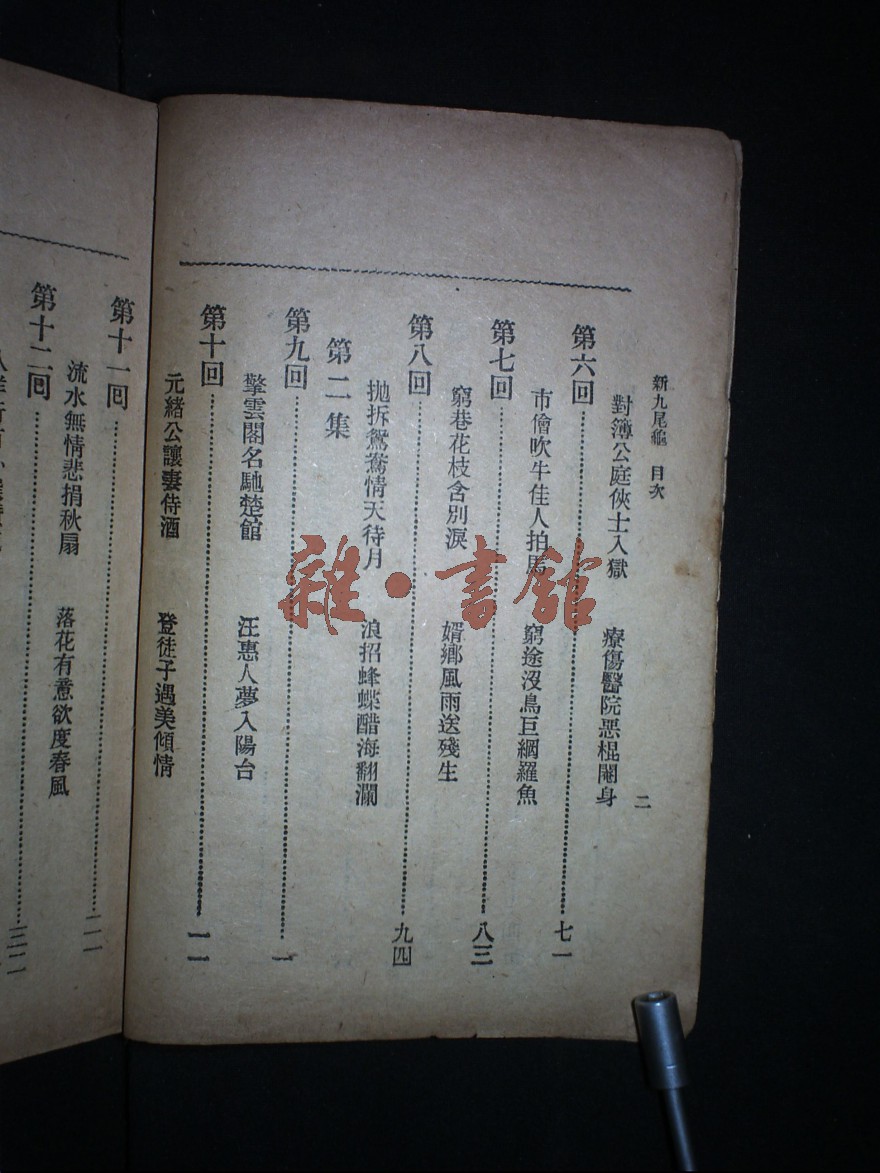 新九尾龜 目次 二
對簿公庭俠士入獄 療傷醫院惡棍閹身
第六回……七一
市儈吹牛佳人拍馬 窮途沒鳥巨綱羅魚
第七回……八三
窮巷花枝含別淚 婿鄉風雨送殘生
第八回……九四
拋拆鴛鴦情天待月 浪招蜂蝶醋海翻瀾
第二集
第九回……一
擎雲閣名馳楚館 汪惠人夢入陽台
第十回……一一
元緒公讓妻侍酒 登徒子遇美傾情
第十一回……二一
流水無情悲捐秋扇 落花有意欲度春風
第十二回……三二
雜·書館